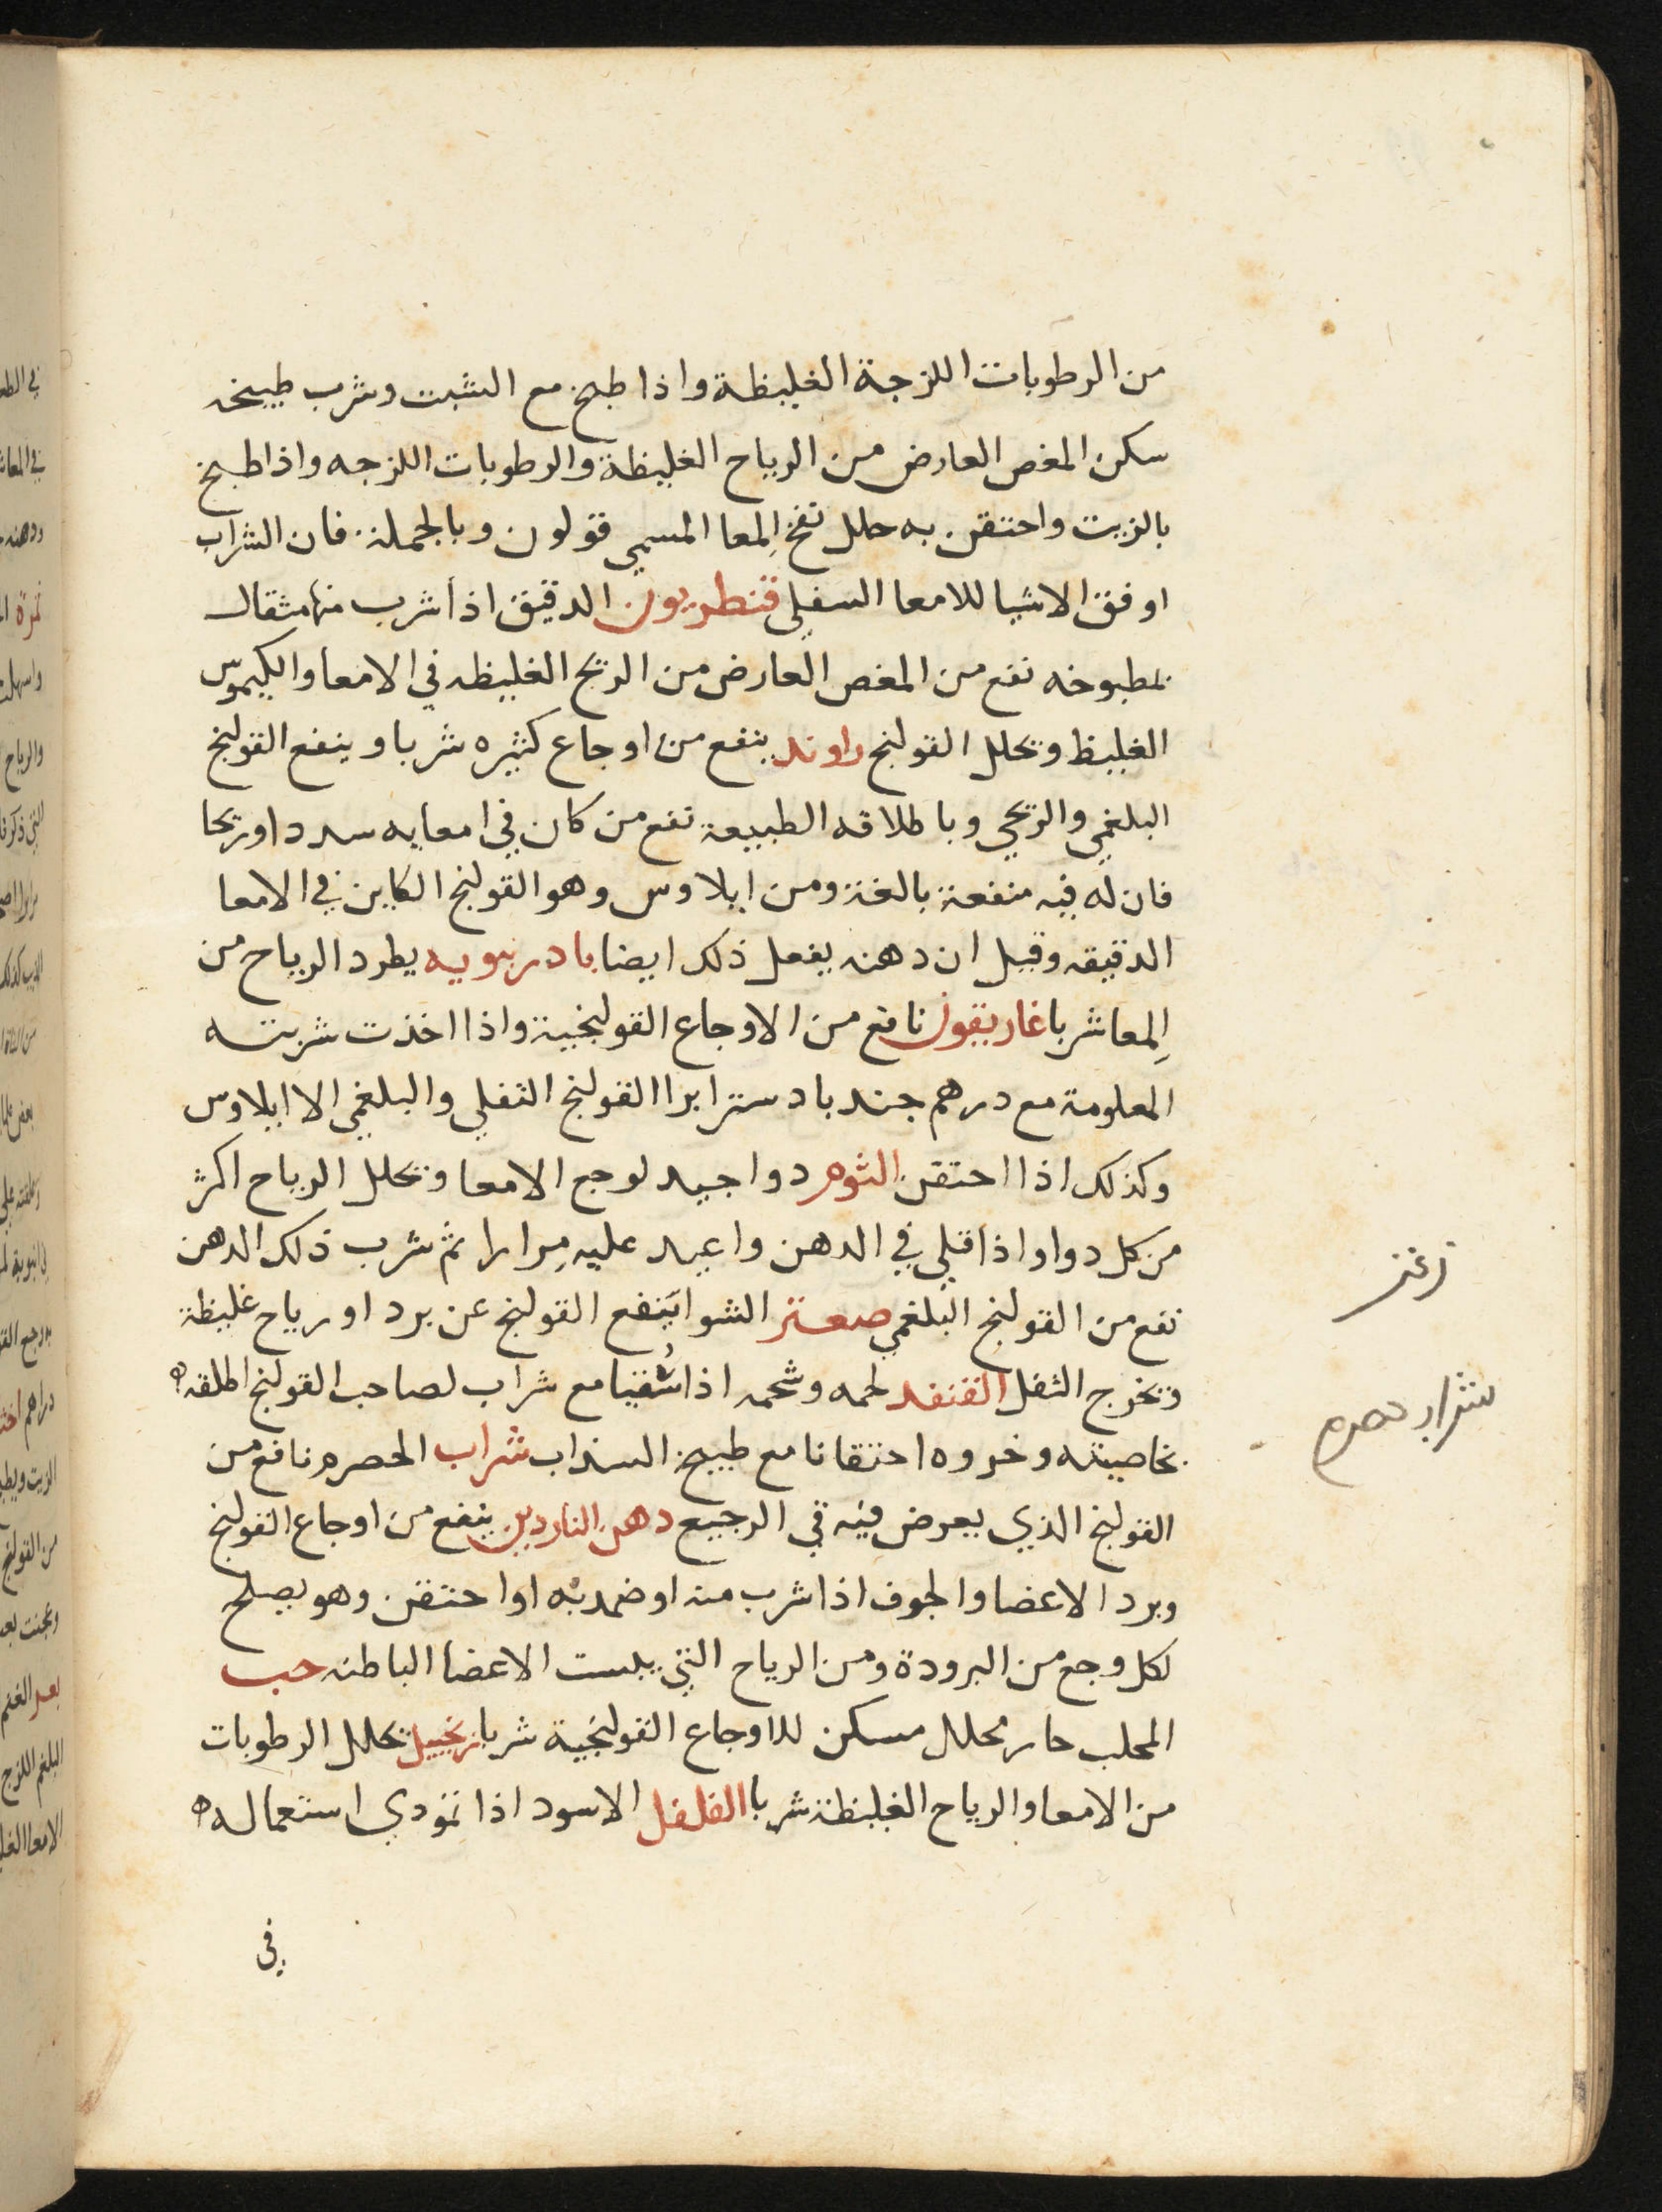 من الرطوبات اللزجة الغليظة واذا طبخ مع الشبت وشرب طبيخه
سكن المغص العارض من الرياح الغليظة والرطوبات اللزجه واذا طبخ
بالزيت واحتقن به حلل نفخ المعا المسمي قولون وبالجملة فان الشراب
اوفق الاشيا للامعا السفلي قنطريون الدقيق اذا شرب منه مثقال
بمطبوخه نفع من المغص العارض من الريح الغليظه في الامعا والكيموس
الغليظ وتحلل القولنج راوند ينفع من اوجاع كثيره شربا وينفع القولنج
البلغمي والريحي وباطلاقه الطبيعة نفع من كان في امعايه سدد اوريحا
فان له فيه منفعة بالغة ومن ايلاوس وهو القولنج الكاين في الامعا
الدقيقه وقيل ان دهنه يفعل ذلك ايضا بادرنبويه يطرد الرياح من
المعا شربا غاريقون نافع من الاوجاع القولنجية واذا اخذت شربته
المعلومة مع درهم جندبادستر ابرا القولنج الثفلي والبلغمي الا ايلاوس
وكذلك اذا احتقن الثوم دوا جيد لوجع الامعا وتحلل الرياح اكثر
من كل دوا واذا قلي في الدهن واعيد عليه مرارا ثم شرب ذلك الدهن
نفع من القولنج البلغمي صعتر الشوا ينفع القولنج عن برد او رياح غليظة
وتخرج الثفل القنفد لحمه وشحمه اذا سقيا مع شراب لصاحب القولنج اطلقه
بخاصيته وخروه احتقانا مع طبيخ السذاب شراب الحصرم نافع من
القولنج الذي يعرض فيه قي الرجيع دهن الناردين ينفع من اوجاع القولنج
وبرد الاعضا والجوف اذا شرب منه او ضمد به او احتقن وهو يصلح
لكل وجع من البرودة ومن الرياح التي يبست الاعضا الباطنه حب
المحلب حار محلل مسكن للاوجاع القولنجية شربا زنجبيل تحلل الرطوبات
من الامعا والرياح الغليظة شربا الفلفل الاسود اذا تمودي استعماله
في
شراب حصرم